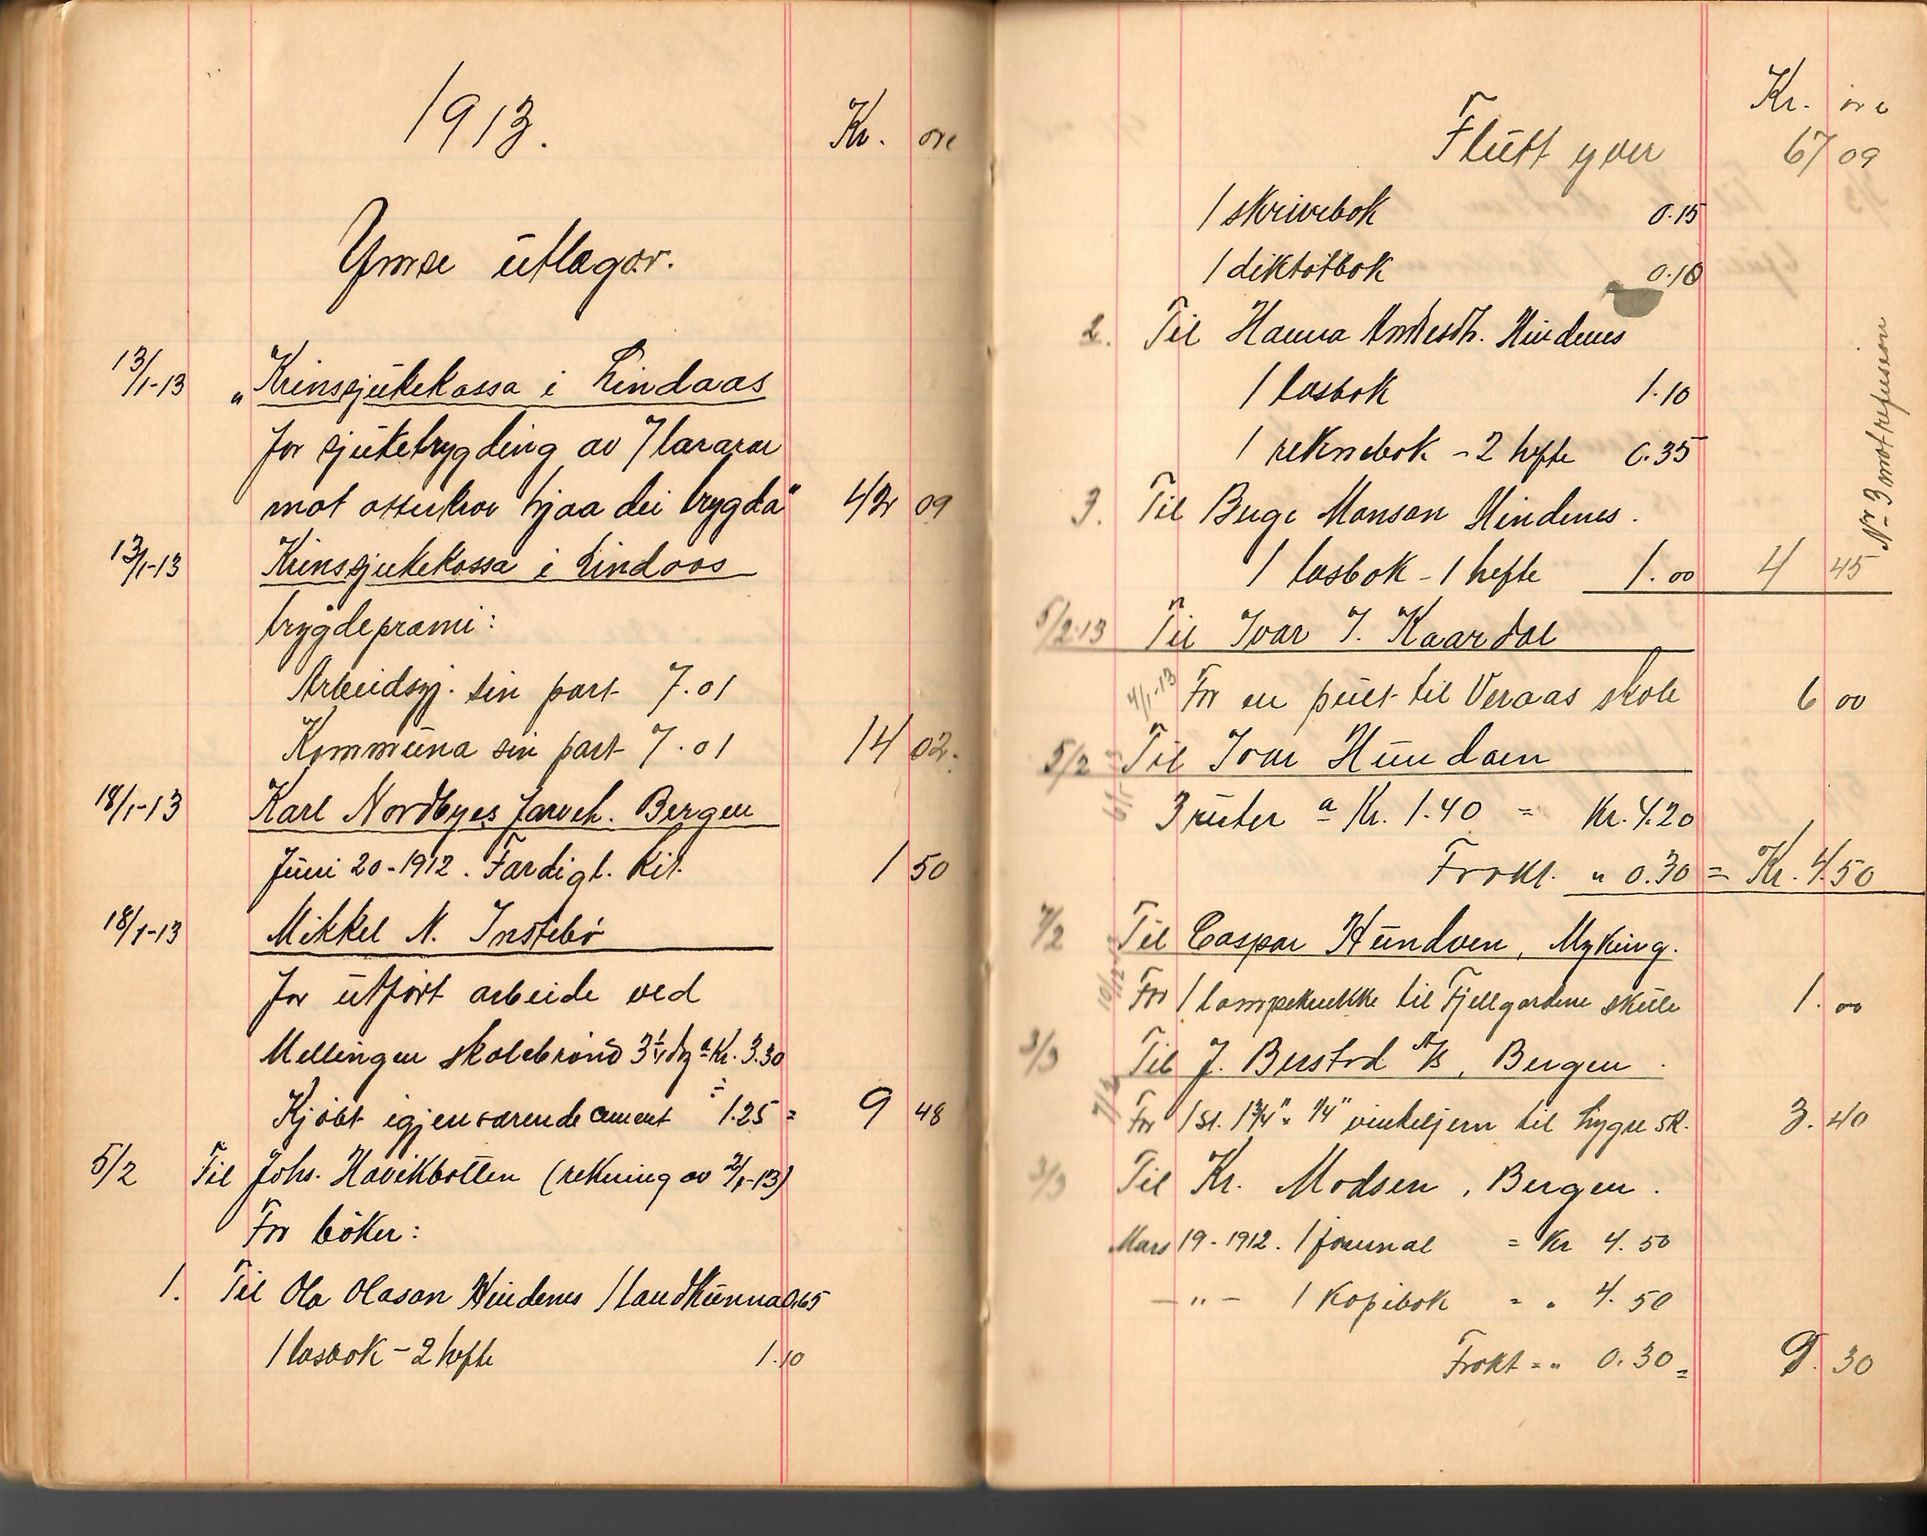 1913.
Kr. øre
Ymse utlagor.
13/1-13 "Krinssjukekassa i Lindaas
for sjuketrygding av 7 lærarar
mot atterkrav hjaa dei trygda" 42 09
13/1-13 Krinssjukekassa i Lindaas
trygdepræmi:
Arbeidsgj. sin part 7.01
Kommuna sin part 7.01 14 02.
18/1-13 Karl Nordbyes farveh. Bergen
Juni 20-1912. Færdigt. Kit. 1 50
18/1-13 Mikkel N. Instebø
for utført arbeide ved
Mellingen skolebrønd 3¼ dg a Kr. 3.30
Kjøbt igjenværende cement ÷ 1.25 = 9 48
5/2 Til Johs. Havikbotten (rekning av 2/1-13)
For bøker:
1. Til Ola Olason Hindenes 1 landkunna 0.65
1 læsbok - 2 hefte 1.10
Kr. øre
Flutt yver 67 09
1 skrivebok 0.15
1 diktatbok 0.10
2. Til Hanna Hindenes
1 læsbok 1.10
1 reknebok - 2 hefte 0.35
3. Til Monson Hindenes.
1 læsbok - 1 hefte 1.00 4 45
Nr. 3 mot refusion
5/2-13 Til Ivar I. Kaardal
4/1-13 For en pult til Veraas skole 6 00
5/2 Til Ivar Hundven
3 ruter a Kr. 1.40 = Kr. 4.20
Frakt. " 0.30 = Kr. 4.50
7/2 Til Caspar Hundven, Myking.
10/12-12 For 1 lampekukke til Fjellgardene skule 1.00
3/3 Til J. Berstad A/S, Bergen.
For 1 st. 1¾" × ¼" vinkeljern til Lygre sk. 3.40
3/3 Til Kr. Madsen, Bergen.
Mars 19-1912. 1 journal = Kr 4.50
— " — 1 Kopibok = " 4.50
Frakt = " 0.30 = 9.30